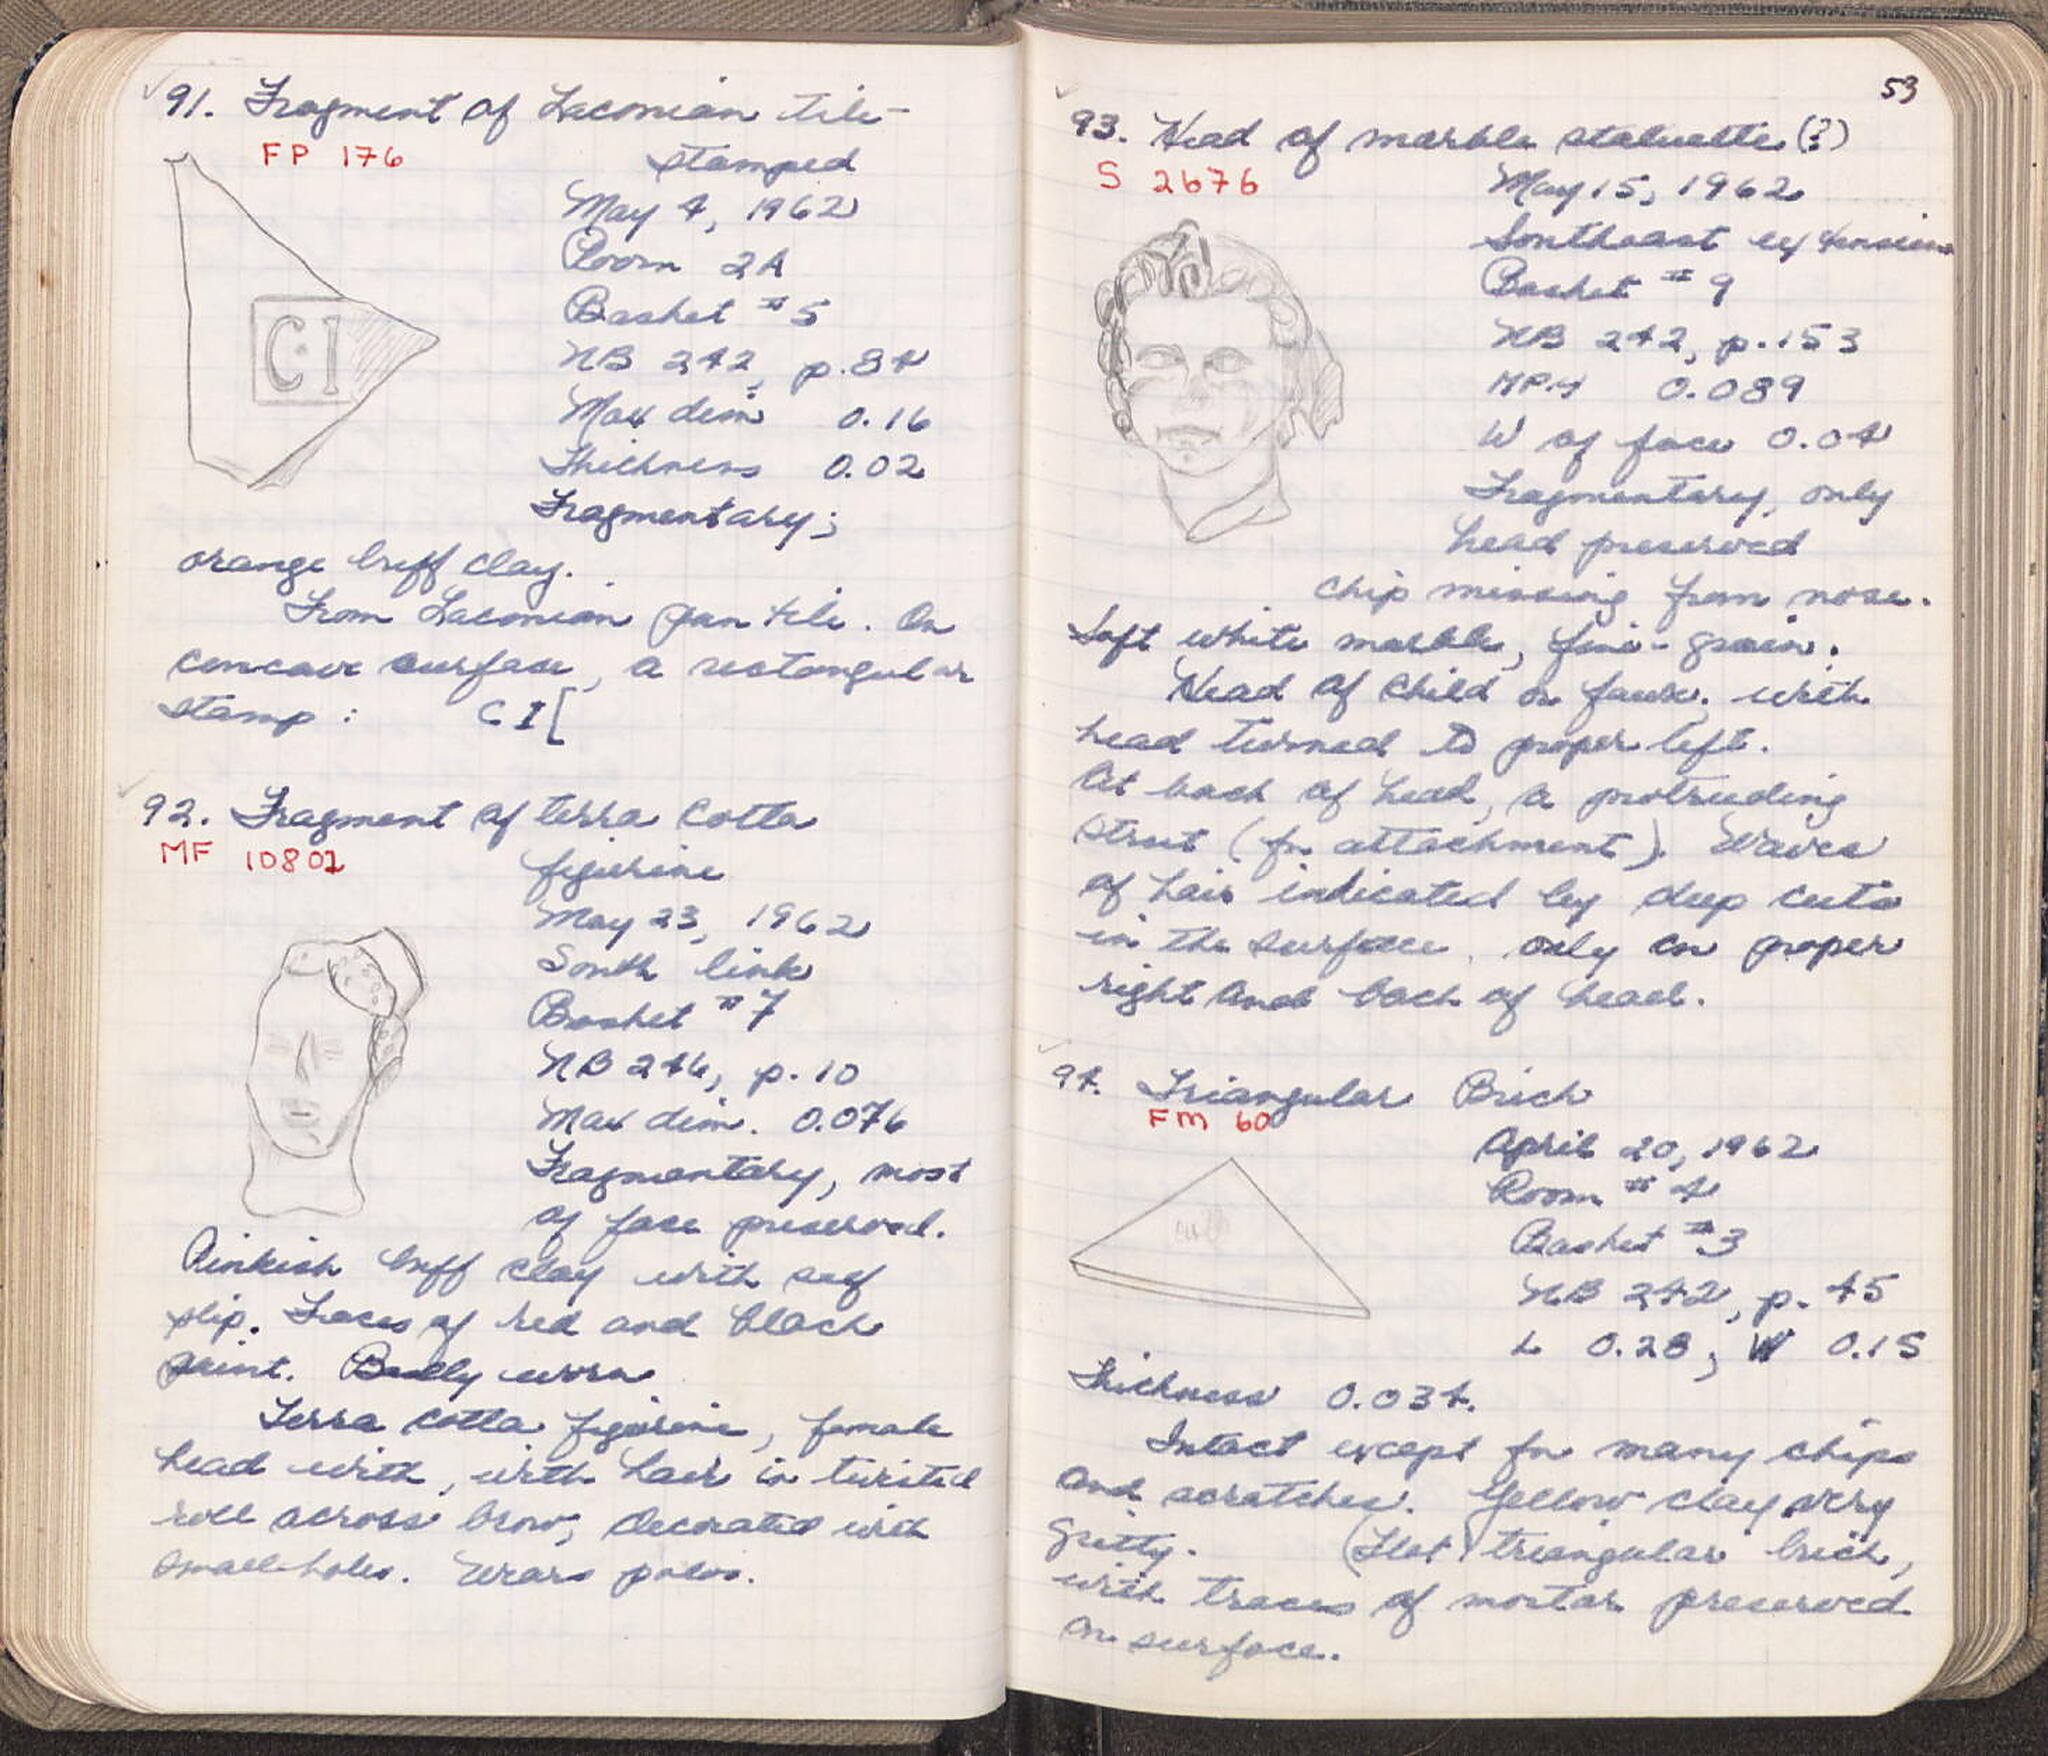 91. Fragment of Laconian tile-
FP 176
stamped
May 4, 1962
Room 2A
Basket #5
NB 242, p. 84
Max dim 0.16
Thickness 0.02
Fragmentary;
orange buff clay.
From Laconian pan tile. On
concave surface, a rectangular
stamp: CI[
CI
92. Fragment of terra cotta
MF 10801
figurine
May 23, 1962
South link
Basket #7
NB 246, p. 10
Max dim. 0.076
Fragmentary, most
of face preserved.
Pinkish buff clay with self
slip. Traces of red and black
paint. Badly worn
Terra cotta figurine, female
head with, with hair in twisted
roll across brow, decorated with
small holes. Wears polos.
53
93. Head of marble statuette (?)
S 2676
May 15, 1962
Southeast extension
Basket #9
NB 242, p. 153
MPH 0.089
W of face 0.04
Fragmentary, only
head preserved
chip missing from nose.
Soft white marble, fine-grain.
Head of child or faun, with
head turned to proper left.
At back of head, a protruding
strut (for attachment). Waves
of hair indicated by deep cuts
in the surface, only on proper
right and back of head.
94. Triangular Brick
FM 60
April 20, 1962
Room #4
Basket #3
NB 242, p. 45
L 0.28, W 0.15
Thickness 0.034.
Intact except for many chips
and scratches. Yellow clay very
gritty. (Flat) triangular brick,
with traces of mortar preserved
on surface.